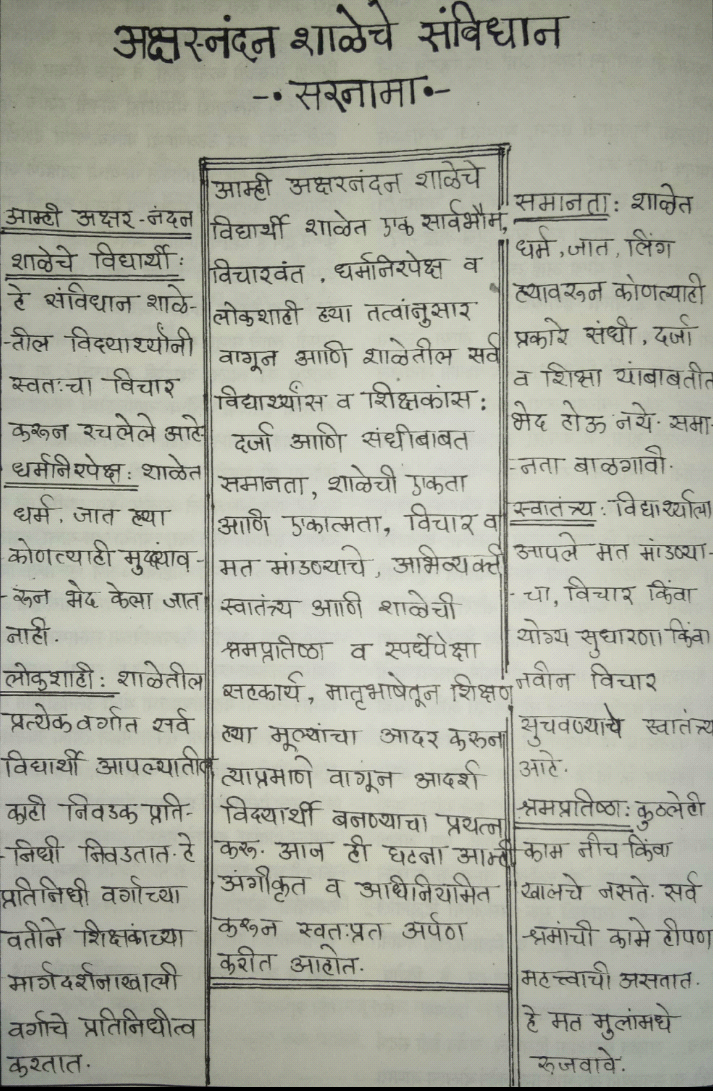 अक्षरनंदन शाळेचे संविधान
-• सरनामा •-
आम्ही अक्षर-नंदन
शाळेचे विद्यार्थी:
हे संविधान शाळे-
-तील विद्यार्थ्यांनी
स्वतःचा विचार
करून रचलेले आहे
धर्मनिरपेक्ष: शाळेत
धर्म, जात ह्या
कोणत्याही मुद्द्याव-
-रून भेद केला जात
नाही.
लोकशाही: शाळेतील
प्रत्येक वर्गात सर्व
विद्यार्थी आपल्यातील
काही निवडक प्रति-
-निधी निवडतात. हे
प्रतिनिधी वर्गाच्या
वतीने शिक्षकांच्या
मार्गदर्शनाखाली
वर्गाचे प्रतिनिधीत्व
करतात.
आम्ही अक्षरनंदन शाळेचे
विद्यार्थी शाळेत एक सार्वभौम,
विचारवंत, धर्मनिरपेक्ष व
लोकशाही ह्या तत्वांनुसार
वागून आणि शाळेतील सर्व
विद्यार्थ्यांस व शिक्षकांस:
दर्जा आणि संधीबाबत
समानता, शाळेची एकता
आणि एकात्मता, विचार व
मत मांडण्याचे, अभिव्यक्ती
स्वातंत्र्य आणि शाळेची
श्रमप्रतिष्ठा व स्पर्धेपेक्षा
सहकार्य, मातृभाषेतून शिक्षण
ह्या मूल्यांचा आदर करून
त्याप्रमाणे वागून आदर्श
विद्यार्थी बनण्याचा प्रयत्न
करू. आज ही घटना आम्ही
अंगीकृत व अधिनियमित
करून स्वतःप्रत अर्पण
करीत आहोत.
समानता: शाळेत
धर्म, जात, लिंग
ह्यावरून कोणत्याही
प्रकारे संधी, दर्जा
व शिक्षा यांबाबतीत
भेद होऊ नये. समा-
-नता बाळगावी.
स्वातंत्र्य: विद्यार्थ्याला
आपले मत मांडण्या-
-चा, विचार किंवा
योग्य सुधारणा किंवा
नवीन विचार
सुचवण्याचे स्वातंत्र्य
आहे.
श्रमप्रतिष्ठा: कुठलेही
काम नीच किंवा
खालचे नसते. सर्व
श्रमांची कामे हीपण
महत्त्वाची असतात.
हे मत मुलांमधे
रुजवावे.